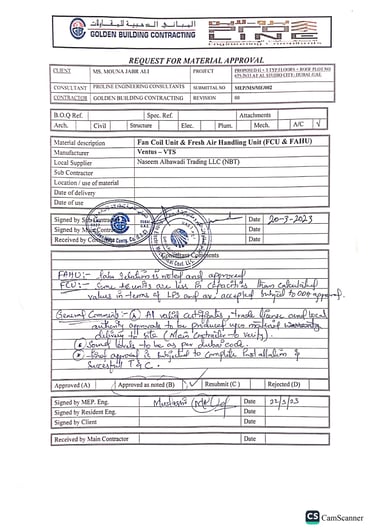 المباني الذهبية للمقاولات
GOLDEN BUILDING CONTRACTING
REQUEST FOR MATERIAL APPROVAL
CLIENT MS. MOUNA JABR ALI PROJECT
CONSULTANT PROLINE ENGINEERING CONSULTANTS SUBMITTAL NO
CONTRACTOR GOLDEN BUILDING CONTRACTING REVISION 00
B.O.Q Ref. Spec. Ref. Attachments
Arch. Civil Structure Elec. Plum. Mech. A/C √
Material description Fan Coil Unit & Fresh Air Handling Unit (FCU & FAHU)
Manufacturer Ventus – VTS
Local Supplier Naseem Alhawadi Trading LLC (NBT)
Sub Contractor
Location / use of material
Date of delivery
Date of use
Signed by Sub Date 20-3-2023
Signed by Main Date
Received by Cons Date
Consultant Comments
FAHU:- Selection is noted and approved
FCU:- Some units are less in capacities than calculated
values in terms of LPS and are accepted subject to approval.
General Comments:- All valid certificates, trade license and local
authority approvals to be produced upon material
delivery to site (Main Contractor to verify).
Sound levels to be as per dubai code.
Final approval is subjected to complete installation &
T & C.
Approved (A) Approved as noted (B) √ Resubmit (C) Rejected (D)
Signed by MEP. Eng. Date 22/3/23
Signed by Resident Eng. Date
Signed by Client Date
Received by Main Contractor Date
CS CamScanner